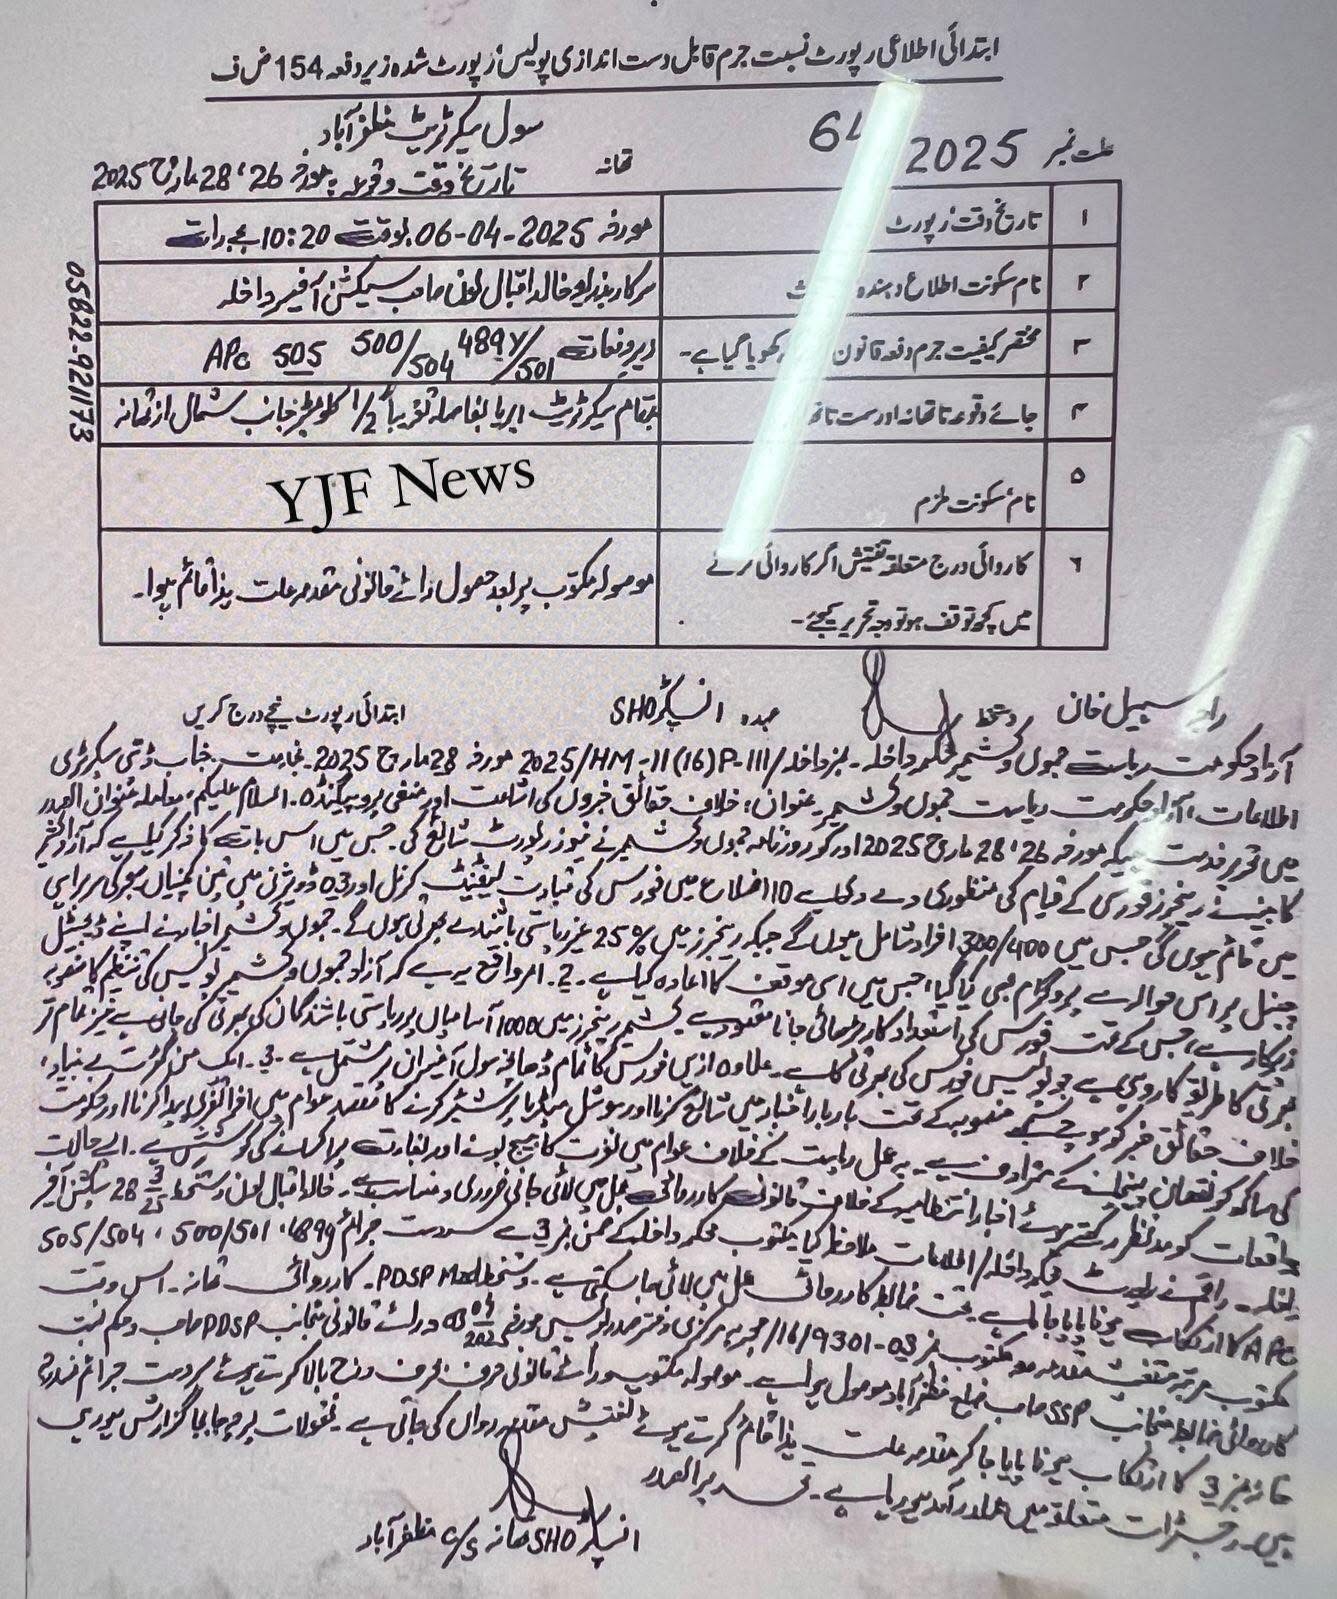 ابتدائی اطلاعی رپورٹ نسبت جرم قابل دست اندازی پولیس رپورٹ شدہ زیر دفعہ 154 ض ف
سول سیکرٹریٹ مظفرآباد
علت نمبر 2025 64 تھانہ
تاریخ وقت وقوعہ مورخہ 26، 28 مارچ 2025
05822-921173
۱ تاریخ وقت رپورٹ مورخہ 06-04-2025 بوقت 10:20 بجے رات
۲ نام سکونت اطلاع دہندہ سرکار بذریعہ خالد اقبال لون صاحب سیکشن آفیسر داخلہ
۳ مختصر کیفیت جرم دفعہ قانون کھویا گیا ہے۔ زیر دفعات 489Y/501 500/504 505 APC
۴ جائے وقوعہ تا تھانہ اور سمت بمقام سیکرٹریٹ ایریا بفاصلہ تقریباً 1/2 کلومیٹر جانب شمال از تھانہ
۵ نام سکونت ملزم
YJF News
۶ کاروائی درج متعلقہ تفتیش اگر کاروائی کرنے
میں کچھ توقف ہو تو وجہ تحریر کیجئے۔
موصولہ مکتوب پر بعد حصول رائے قانونی مقدمہ علت ہذا قائم ہوا۔
راجہ سہیل خان دستخط عہدہ انسپکٹر SHO ابتدائی رپورٹ نیچے درج کریں
آزاد حکومت ریاست جموں و کشمیر محکمہ داخلہ۔ نمبر داخلہ/2025/HM-11(16)P-111 مورخہ 28 مارچ 2025۔ بخدمت جناب ڈپٹی سیکرٹری
اطلاعات، آزاد حکومت ریاست جموں و کشمیر عنوان: خلاف حقائق خبروں کی اشاعت اور منفی پروپیگنڈہ۔ السلام علیکم، معاملہ عنوان الصدر
میں تحریر خدمت ہیکہ مورخہ 26، 28 مارچ 2025 اور کو روزنامہ جموں و کشمیر نے نیوز رپورٹ شائع کی۔ جس میں اس بات کا ذکر کیا ہے کہ آزاد کشمیر
کابینہ نے رینجرز فورس کے قیام کی منظوری دے دی ہے 10 اضلاع میں فورس کی قیادت لیفٹیننٹ کرنل اور 03 ڈویژن میں تین کمپنیاں میجر کی سربراہی
میں قائم ہوں گی جس میں 300/400 افراد شامل ہوں گے جبکہ رینجرز میں 25% غیر ریاستی باشندے بھرتی ہوں گے۔ جموں و کشمیر اخبار نے اپنے ڈیجیٹل
چینل پر اس حوالہ سے پروگرام بھی کیا گیا، جس میں اسی موقف کا اعادہ کیا ہے۔ 2۔ امر واقع یہ ہے کہ آزاد جموں و کشمیر پولیس کی تنظیم کا منصوبہ
زیرکار ہے، جس کے تحت فورس کی استعداد کار بڑھائی جانا مقصود ہے کشمیر رینجرز میں 1000 آسامیاں پر ریاستی باشندگان کی بھرتی کی جانی ہے نیز تمام تر
بھرتی کا طریق کار وہی ہے جو پولیس فورس کی بھرتی کا ہے۔ علاوہ ازیں فورس کا تمام ڈھانچہ سول آفیسران پر مشتمل ہے۔ 3۔ ایک من گھڑت بے بنیاد،
خلاف حقائق خبر کو سوچے سمجھے منصوبہ کے تحت بار بار اخبار میں شائع کرنا اور سوشل میڈیا پر شیئر کرنے کا مقصد عوام میں افراتفری پیدا کرنا اور حکومت
کی ساکھ کو نقصان پہنچانے کے مترادف ہے۔ یہ عمل ریاست کے خلاف عوام میں نفرت کا بیج بونے اور بغاوت پر اکسانے کی کوشش ہے۔ ایسے حالات
واقعات کو مدنظر رکھتے ہوئے اخبار انتظامیہ کے خلاف قانونی کارروائی عمل میں لائی جانی ضروری و مناسب ہے۔ خالد اقبال لون دستخط 28 3/25 سیکشن آفیسر
داخلہ۔ راقم نے رپورٹ محکمہ داخلہ/اطلاعات ملاحظہ کیا مکتوب محکمہ داخلہ کے ضمن نمبر 3 سے سردست جرائم 489Y، 500/501، 505/504
APC کا ارتکاب ہونا پایا جاتا ہے تحت ضابطہ کارروائی عمل میں لائی جا سکتی ہے۔ دستخط PDSP Mzd۔ کارروائی تھانہ۔ اس وقت
مکتوب مرتبہ مقدمہ مکتوب نمبر 16/9301-03/ مجریہ مرکزی دفتر صدر پولیس مورخہ 03 04/2025 و رائے قانونی منجانب PDSP صاحب و حکم نسبت
کاروائی ضابطہ منجانب SSP صاحب ضلع مظفرآباد موصول ہوا ہے۔ موصولہ مکتوب و رائے قانونی حرف بحرف درج بالا کرتے ہوئے سردست جرائم مندرجہ
خانہ نمبر 3 کا ارتکاب ہونا پایا جا کر مقدمہ علت ہذا قائم کرتے ہوئے تفتیش مقدمہ رواں کی جاتی ہے۔ نقولات پرچہ بجا گزارش ہو رہی
ہیں۔ رجسٹرات متعلقہ میں عملدرآمد ہو رہا ہے۔ تحریر صدر
انسپکٹر SHO تھانہ C/S مظفرآباد